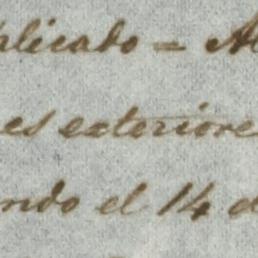 plicado = A
es exteriore
ndo el 14 d